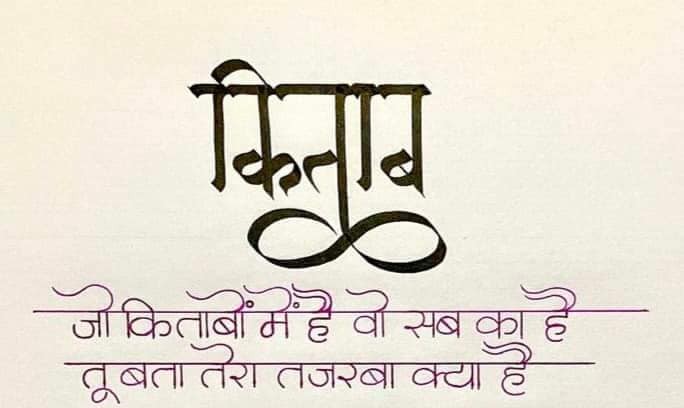 किताब
जो किताबों में है वो सब का है
तू बता तेरा तजरबा क्या है